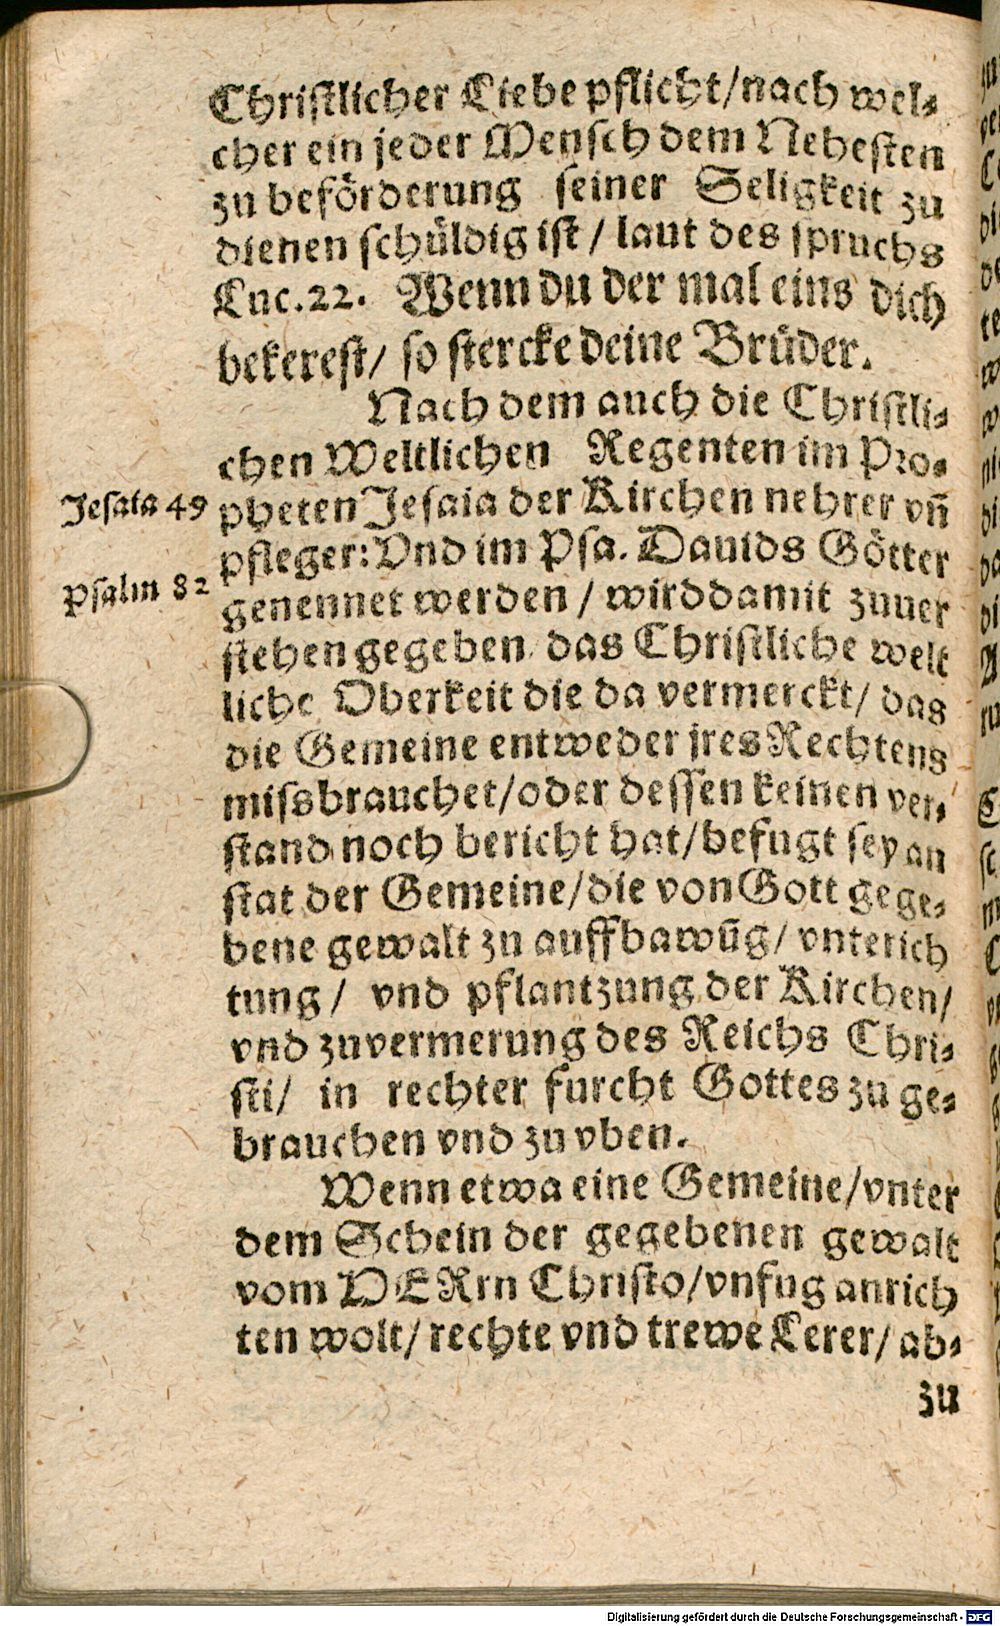 Christlicher Liebe pflicht/nach wel⸗
cher ein jeder Mensch dem Nehesten
zu beförderung seiner Seligkeit zu
dienen schüldig ist / laut des spruchs
Luc.22. Wenn du der mal eins dich
bekerest/ so stercke deine Brüder.
Nach dem auch die Christli⸗
chen Weltlichen Regenten im Pro⸗
Jesaia 49 pheten Jesaia der Kirchen nehrer vn̄
pfleger: Vnd im Psa. Dauids Götter
Psalm 82 genennet werden / wird damit zuuer
stehen gegeben das Christliche welt
liche Oberkeit die da vermerckt/ das
die Gemeine entweder jres Rechtens
missbrauchet/oder dessen keinen ver⸗
stand noch bericht hat/befugt sey an
stat der Gemeine/die von Gott gege⸗
bene gewalt zu auffbawūg/ vnterich
tung / vnd pflantzung der Kirchen/
vnd zuvermerung des Reichs Chri⸗
sti/ in rechter furcht Gottes zu ge⸗
brauchen vnd zu vben.
Wenn etwa eine Gemeine/vnter
dem Schein der gegebenen gewalt
vom HERrn Christo/vnfug anrich
ten wolt/ rechte vnd trewe Lerer/ ab⸗
zu
Digitalisierung gefördert durch die Deutsche Forschungsgemeinschaft - DFG